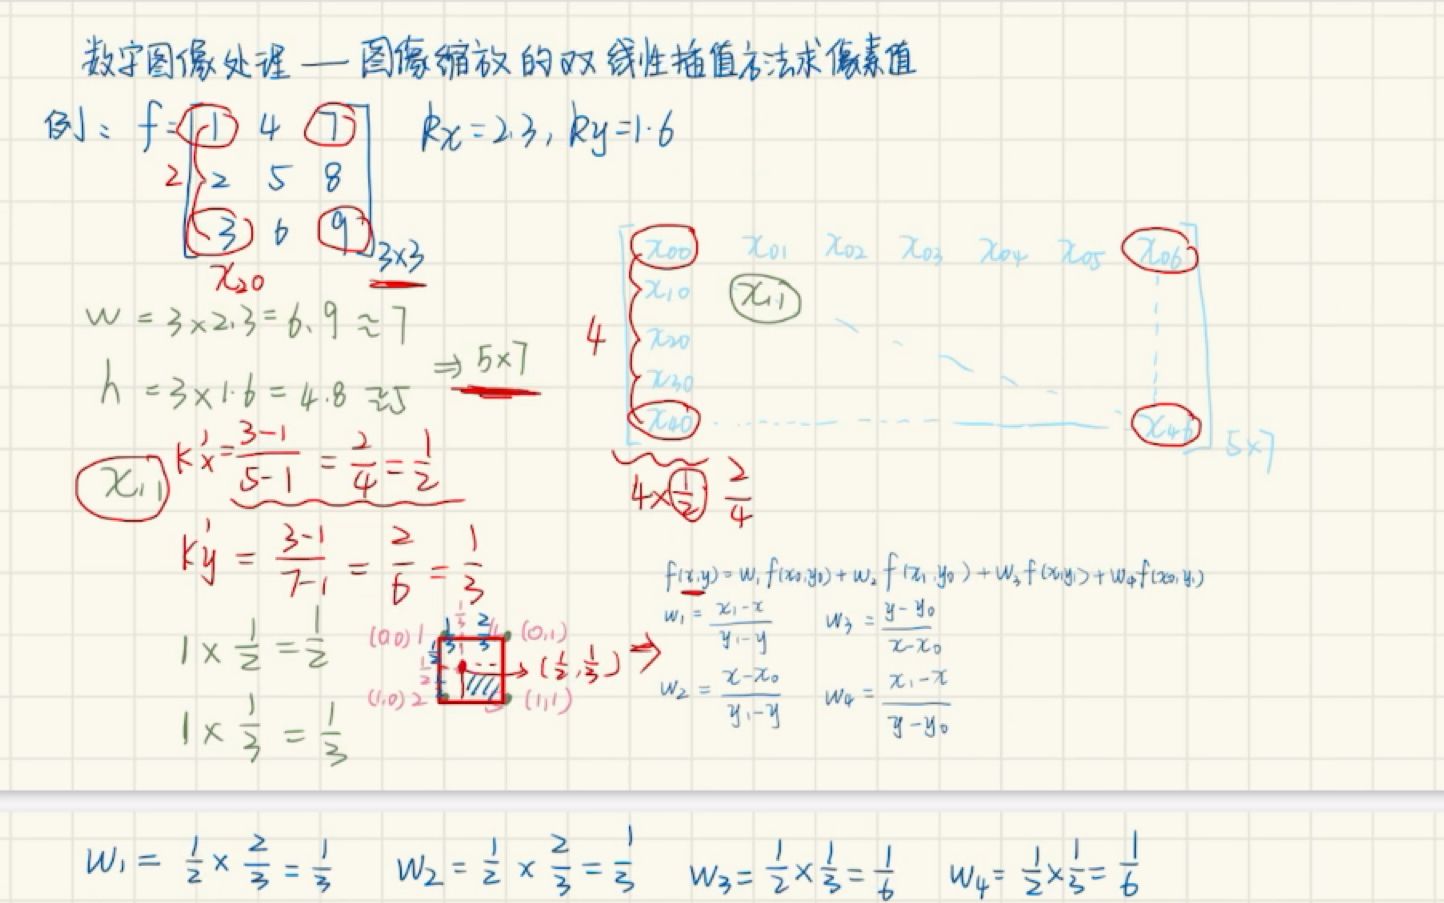 数字图像处理 — 图像缩放的双线性插值方法求像素值
例: f = [1 4 7 kx=2.3, ky=1.6
2 2 5 8
3 6 9] 3×3
x20
w = 3×2.3 = 6.9 ≈ 7
h = 3×1.6 = 4.8 ≈ 5 ⇒ 5×7
x00 x01 x02 x03 x04 x05 x06
x10 x11
4 x20
x30
x40 x46 5×7
4×1/2 2/4
x11 Kx' = 3-1/5-1 = 2/4 = 1/2
Ky' = 3-1/7-1 = 2/6 = 1/3
1 × 1/2 = 1/2
1 × 1/3 = 1/3
1/3 2/3
(0,0) 1 4 (0,1)
1/2 → (1/2, 1/3) ⇒
(1,0) 2 5 (1,1)
f(x,y) = w1 f(x0,y0) + w2 f(x1,y0) + w3 f(x1,y1) + w4 f(x0,y1)
w1 = x1-x/y1-y w3 = y-y0/x-x0
w2 = x-x0/y1-y w4 = x1-x/y-y0
w1 = 1/2 × 2/3 = 1/3 w2 = 1/2 × 2/3 = 1/3 w3 = 1/2 × 1/3 = 1/6 w4 = 1/2 × 1/3 = 1/6